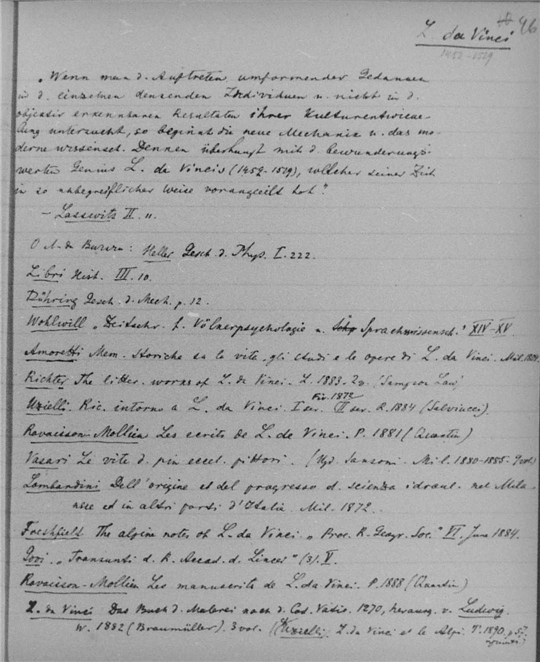 46
L. da Vinci
1452-1519
„Wenn man d. Auftreten umformender Gedanken
in d. einzelnen denkenden Individuen u. nicht in d.
objectiv erkennbaren Resultaten ihrer Kulturentwicke-
lung untersucht, so beginnt die neue Mechanik u. das mo-
derne wissensch. Denken überhaupt mit d. bewunderungs-
werten Genius L. da Vincis (1452-1519), welcher seiner Zeit
in so unbegreiflicher Weise vorangeeilt hat."
— Lasswitz II. 11.
Heller Gesch. d. Phys. I. 222.
Libri Hist. III. 10.
Dühring Gesch. d. Mech. p. 12.
Wohlwill „Zeitschr. f. Völkerpsychologie u. Sprachwissensch." XIV-XV
Amoretti Mem. storiche su la vita, gli studi e le opere di L. da Vinci. Mil. 1804.
Richter The litter. works of L. da Vinci. L. 1883. 2v. (Sampson Low)
Fir. 1872
Uzielli Ric. intorno a L. da Vinci. I ser. II ser. R. 1884 (Salviucci)
Ravaisson-Mollien Les ecrits de L. de Vinci. P. 1881 (Quantin)
Vasari Le vite d. piu eccel. pittori. (Sansoni. Mil. 1880-1885.
Lombardini Dell'origine et del progresso d. scienza idraul. nel Mila-
nese ed in altri parti d'Italia. Mil. 1872.
Freshfield The alpine notes of L. da Vinci „Proc. R. Geogr. Soc." VI. June 1884.
Govi „Transunti d. R. Accad. d. Lincei" (3). V.
Ravaisson-Mollien Les manuscrits de L. da Vinci. P. 1888 (Quantin)
L. da Vinci Das Buch d. Malerei nach d. Cod. Vatic. 1270, herausg. v. Ludwig.
W. 1882 (Braumüller). 3 vol. (Uzielli, L. da Vinci et le Alpi. T. 1890. p. 57.